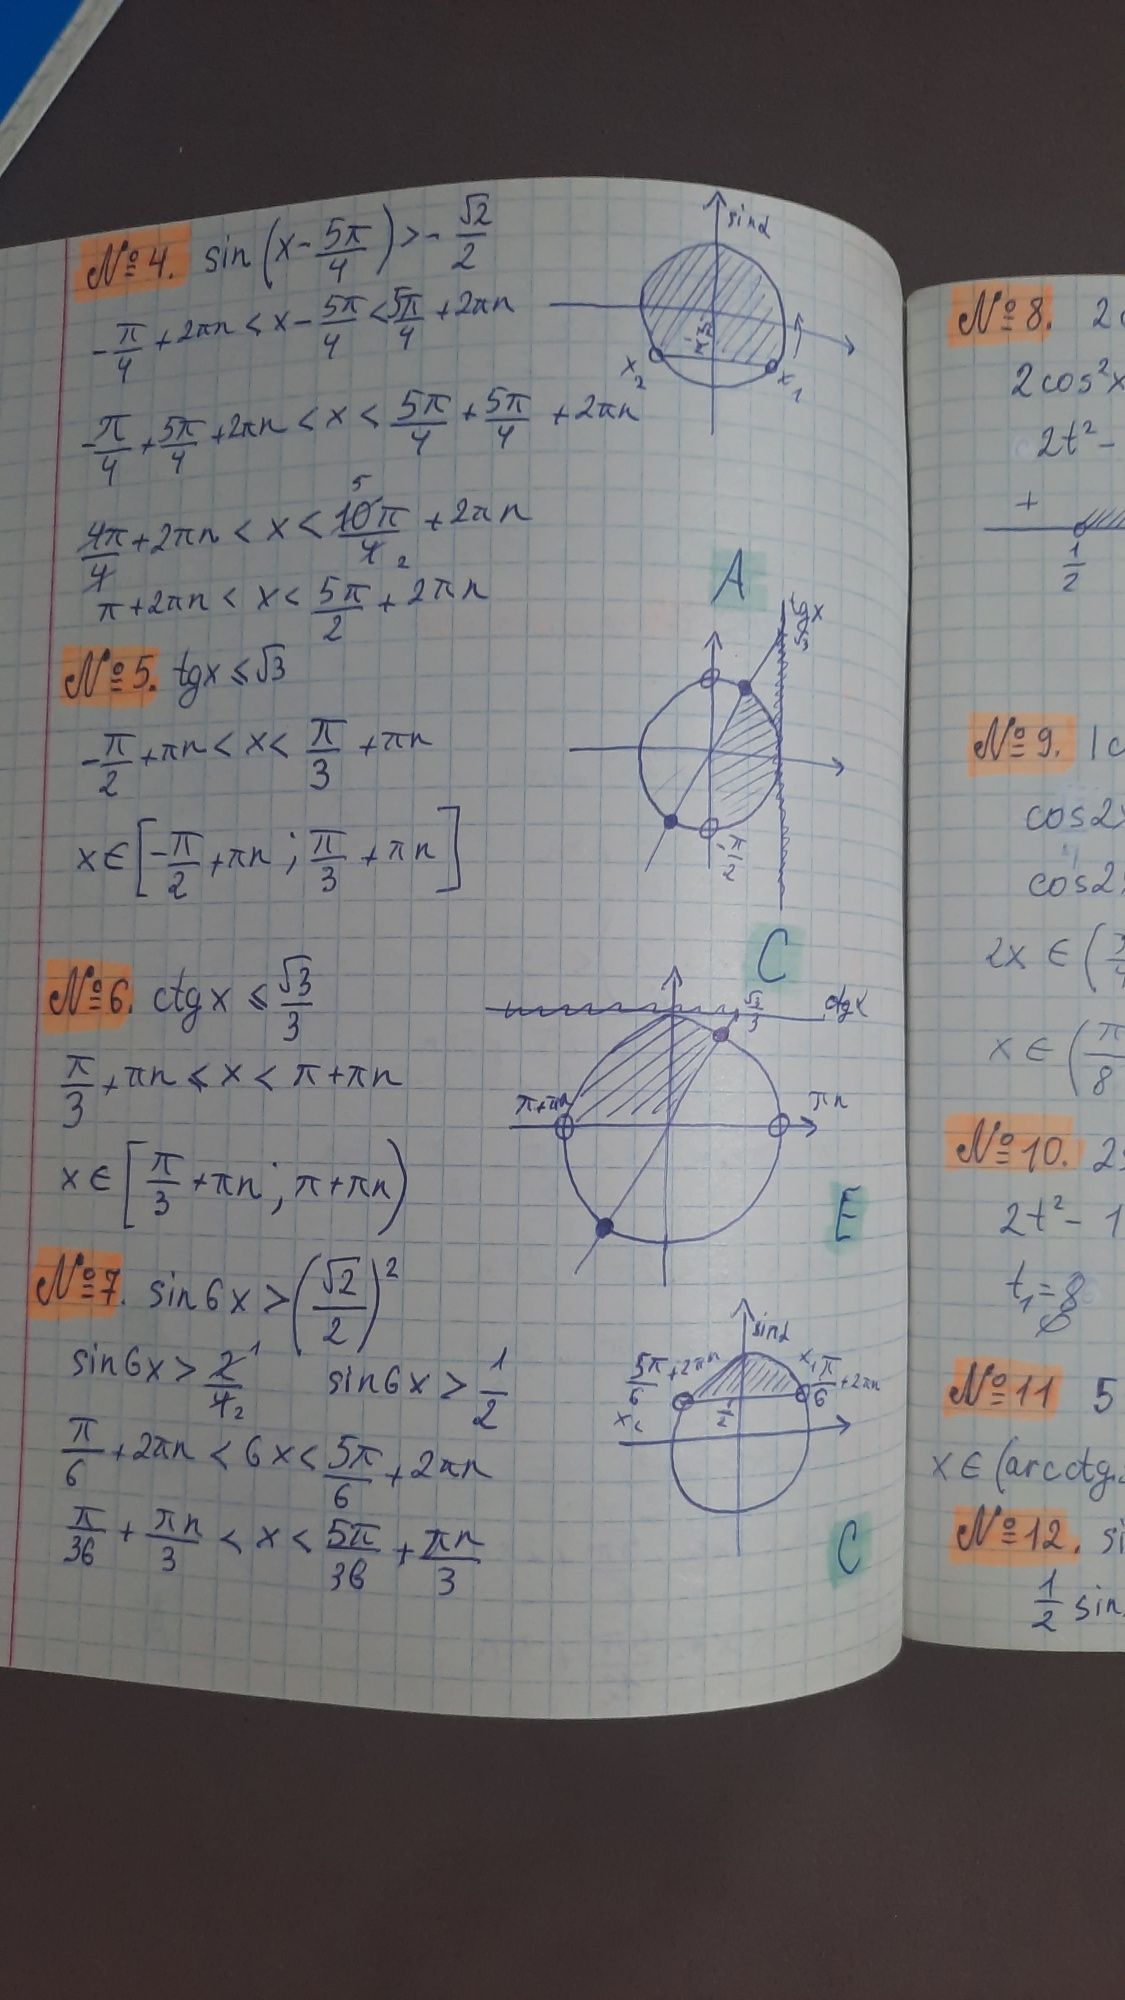 №4. sin(x - 5π/4) > - √2/2
-π/4 + 2πn < x - 5π/4 < 5π/4 + 2πn
-π/4 + 5π/4 + 2πn < x < 5π/4 + 5π/4 + 2πn
4π/4 + 2πn < x < 10π/4 + 2πn
5
2
π + 2πn < x < 5π/2 + 2πn
sinα
x₂
x₁
A
№5. tgx ≤ √3
-π/2 + πn < x < π/3 + πn
x ∈ [-π/2 + πn ; π/3 + πn]
tgx
√3
-π/2
C
№6. ctgx ≤ √3/3
π/3 + πn ≤ x < π + πn
x ∈ [π/3 + πn ; π + πn)
√3/3
ctgx
π+πn
πn
E
№7. sin6x > (√2/2)²
sin6x > 2/4
1
2
sin6x > 1/2
π/6 + 2πn < 6x < 5π/6 + 2πn
π/36 + πn/3 < x < 5π/36 + πn/3
sinα
5π/6 + 2πn
x₁ π/6 + 2πn
1/2
C
№8. 2
2cos²x
2t² -
+
1/2
№9. |c
cos2
cos2
2x ∈ (
x ∈ (π/8
№10. 2
2t² - 1
t₁ =
№11 5
x ∈ (arcctg
№12. si
1/2 sin